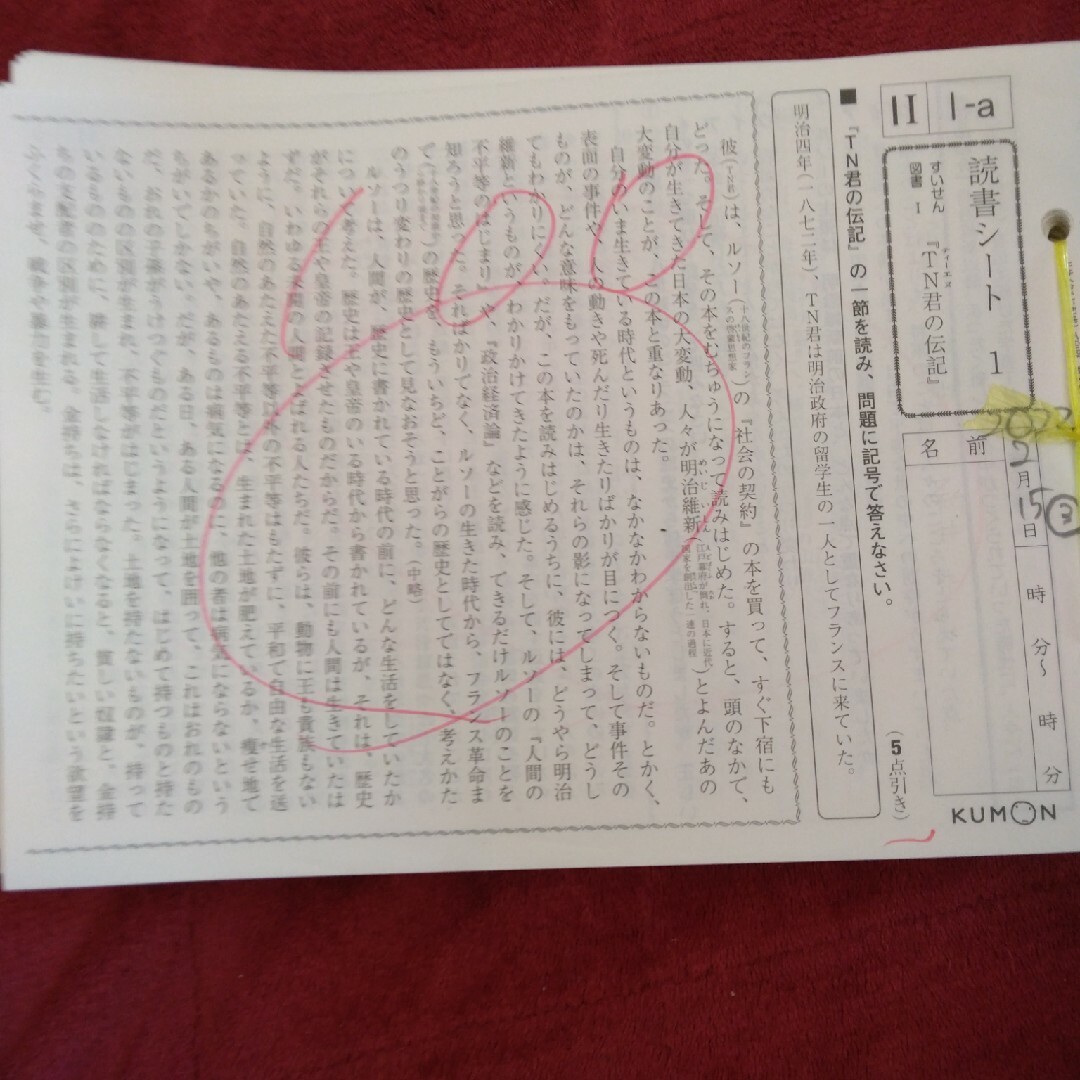 II
1-a
読書シート 1
すいせん図書 I
『TN君の伝記』
ティーエヌ
名前
2022
2月15日
時 分〜 時 分
KUMON
■『TN君の伝記』の一節を読み、問題に記号で答えなさい。
(5点引き)
明治四年(一八七二年)、TN君は明治政府の留学生の一人としてフランスに来ていた。
彼(TN君)は、ルソー(十八世紀のフランスの啓蒙思想家)の『社会の契約』の本を買って、すぐ下宿にも
どった。そして、その本をむちゅうになって読みはじめた。すると、頭のなかで、
自分が生きてきた日本の大変動、人々が明治維新(江戸幕府が倒れ、日本に近代国家を創出した一連の過程)とよんだあの
大変動のことが、この本と重なりあった。
自分のいま生きている時代というものは、なかなかわからないものだ。とかく、
表面の事件や、人の動きや死んだり生きたりばかりが目につく。そして事件その
ものが、どんな意味をもっていたのかは、それらの影になってしまって、どうし
てもわかりにくい。だが、この本を読みはじめるうちに、彼には、どうやら明治
維新というものが、わかりかけてきたように感じた。そして、ルソーの『人間の
不平等のはじまり』や、『政治経済論』などを読み、できるだけルソーのことを
知ろうと思った。そればかりでなく、ルソーの生きた時代から、フランス革命ま
での歴史を、もういちど、ことがらの歴史としてではなく、考えかた
のうつり変わりの歴史として見なおそうと思った。(中略)
ルソーは、人間が、歴史に書かれている時代の前に、どんな生活をしていたか
について考えた。歴史は王や皇帝のいる時代から書かれているが、それは、歴史
がそれらの王や皇帝の記録させたものだからだ。その前にも人間は生きていたは
ずだ。いわゆる未開の人間とよばれる人たちだ。彼らは、動物に王も貴族もない
ように、自然のあたえた不平等以外の不平等はもたずに、平和で自由な生活を送
っていた。自然のあたえる不平等は、生まれた土地が肥えているか、瘦せ地で
あるかのちがいや、あるものは病気になるのに、他の者は病気にならないという
ちがいでしかない。だが、ある日、ある人間が土地を囲って、これはおれのもの
だ、おれの子孫がうけつぐのだ、というようになって、はじめて持つものと持た
ないものの区別がうまれ、不平等がはじまった。土地を持たないものが、持って
いるもののために、耕して生活しなければならなくなると、貧しい奴隷と、金持
ちの支配者の区別が生まれる。金持ちは、さらによけいに持ちたいという欲望を
ふくらませ、戦争や暴力を生む。
100